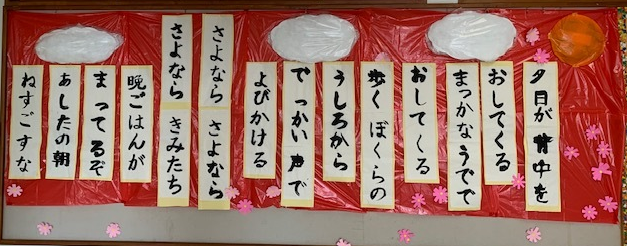 夕日が背中を
おしてくる
まっかなうでで
おしてくる
歩くぼくらの
うしろから
でっかい声で
よびかける
さよなら さよなら
さよなら きみたち
晩ごはんが
まってるぞ
あしたの朝
ねすごすな